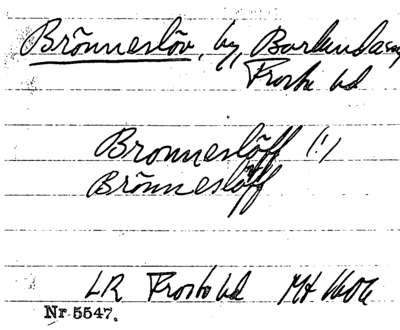 Brönneslöv, by, Borlunda sn,
Frosta hd
Bronneslöff (!)
Brönneslöff
LR Frosta hd
Nr 5547.